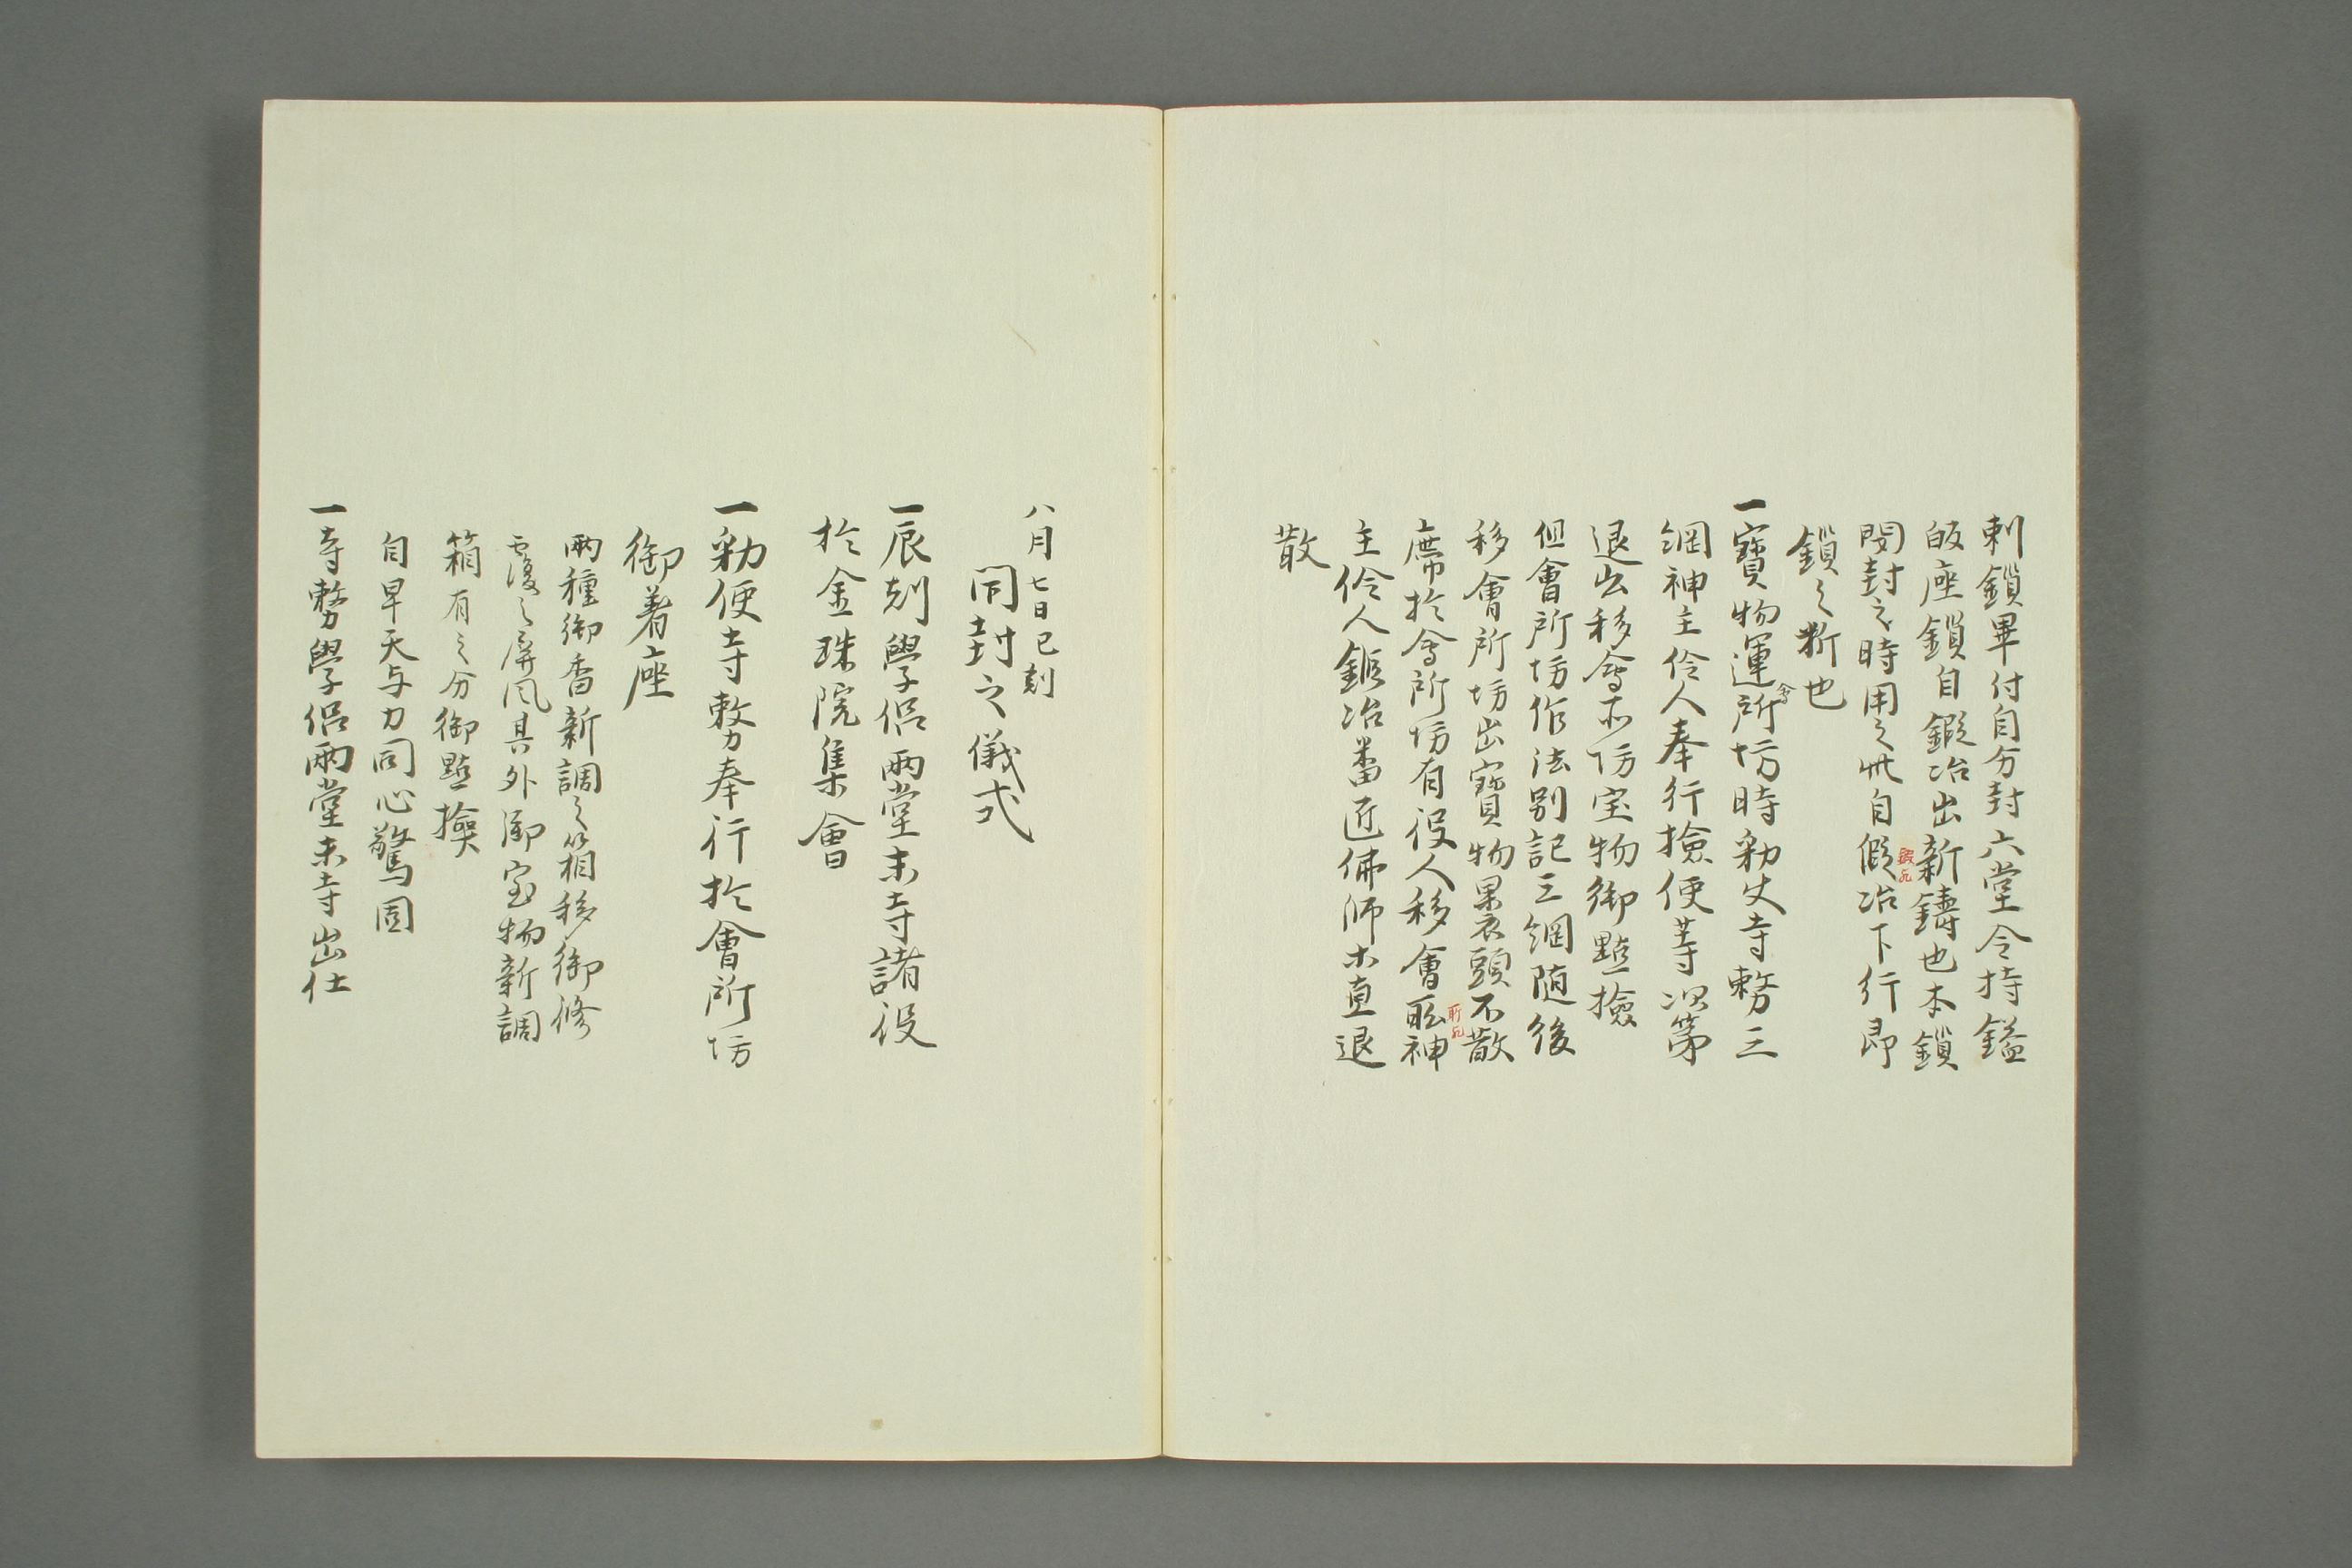 刺鎖畢付自分封六堂令持鎰
皈座鎖自鍜冶出新鑄也本鎖
閇封之時用之此自假冶下行即
鎖之断也
一寶物運會所坊時勅丈寺務三
綱神主伶人奉行撿使等次第
退出移會所坊宝物御點撿
但會所坊作法別記三綱随後
移會所坊出寶物果衣頭不散
席於會所坊有役人移會所神
主伶人鍜冶番匠佛師木直退
散
八月七日巳刻
開封之儀式
一辰刻學侶兩堂末寺諸役
於金珠院集會
一勅使寺務奉行於會所坊
御著座
兩種御香新調之箱移御修
覆之屏風具外御宝物新調
箱有之分御點撿
自早天与力同心警固
一寺務學侶兩堂末寺出仕